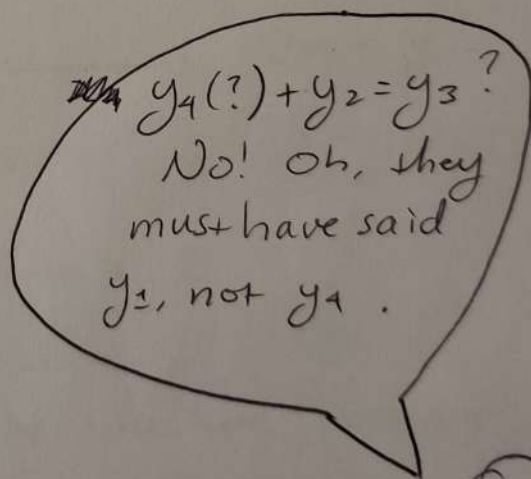 y₄(?) + y₂ = y₃ ?
No! Oh, they
must have said
y₁, not y₄ .